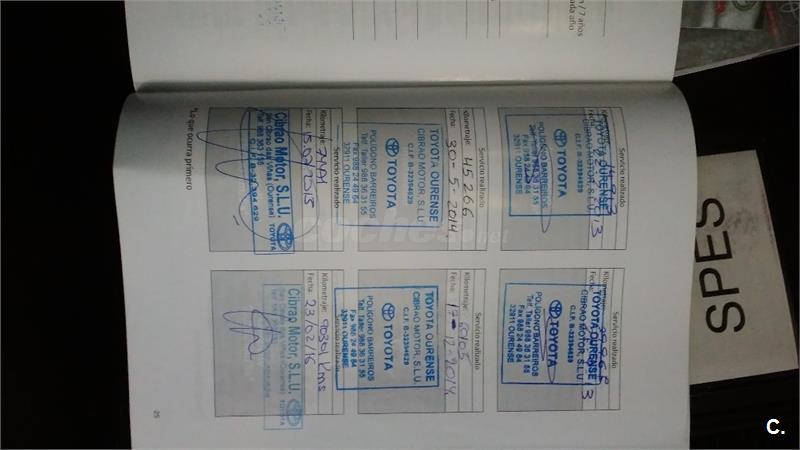 n / 7 años
ada año
Servicio realizado
Kilometraje:
Fecha:
TOYOTA OURENSE
CIBRAO MOTOR, S.L.U.
C.I.F. B-32394629
TOYOTA
POLIGONO BARREIROS
Telf. Taller 988 36 31 55
Fax 988 24 49 64
32911 OURENSE
Servicio realizado
TOYOTA OURENSE
CIBRAO MOTOR, S.L.U.
C.I.F. B-32394629
TOYOTA
POLIGONO BARREIROS
Telf. Taller 988 36 31 55
Fax 988 24 49 64
32911 OURENSE
Servicio realizado
Kilometraje: 45266
Fecha: 30-5-2014
TOYOTA OURENSE
CIBRAO MOTOR, S.L.U.
C.I.F. B-32394629
TOYOTA
POLIGONO BARREIROS
Telf. Taller 988 36 31 55
Fax 988 24 49 64
32911 OURENSE
Servicio realizado
Kilometraje:
Fecha: 17-12-2014
TOYOTA OURENSE
CIBRAO MOTOR, S.L.U.
C.I.F. B-32394629
TOYOTA
POLIGONO BARREIROS
Telf. Taller 988 36 31 55
Fax 988 24 49 64
32911 OURENSE
Servicio realizado
Kilometraje:
Fecha: 15.07.2015
C.I.F. B-32 394 629
Cibrao Motor, S.L.U.
TOYOTA
Servicio realizado
Kilometraje: 90301 Kms
Fecha: 23/02/16
Cibrao Motor, S.L.U.
TOYOTA
*Lo que ocurra primero
25
SPES
coches.net
C.